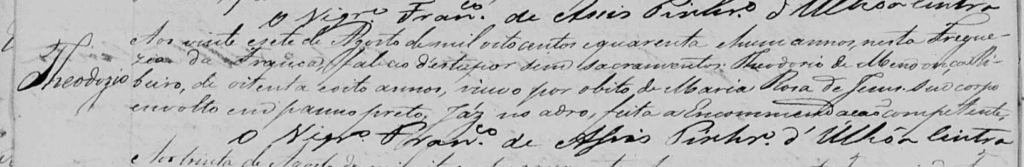 O Vigrº Franco. de Assis Pinhrº. d'Ulhôa Cintra
Aos vinte e sete de Agosto de mil oito centos e quarenta e hum annos, nesta Fregue-
Theodozio
zia da Franca, faleceo d'estupor sem sacramentos Theodozio de Ri-
beiro, de oitenta e oito annos, viuvo por obito de Maria Rosa de Jesus. Seu corpo
envolto em panno preto, Jáz no adro, feita a Encommendacão competente.
O Vigrº Franco. de Assis Pinhrº. d'Ulhôa Cintra
Aos trinta de Agosto de mil